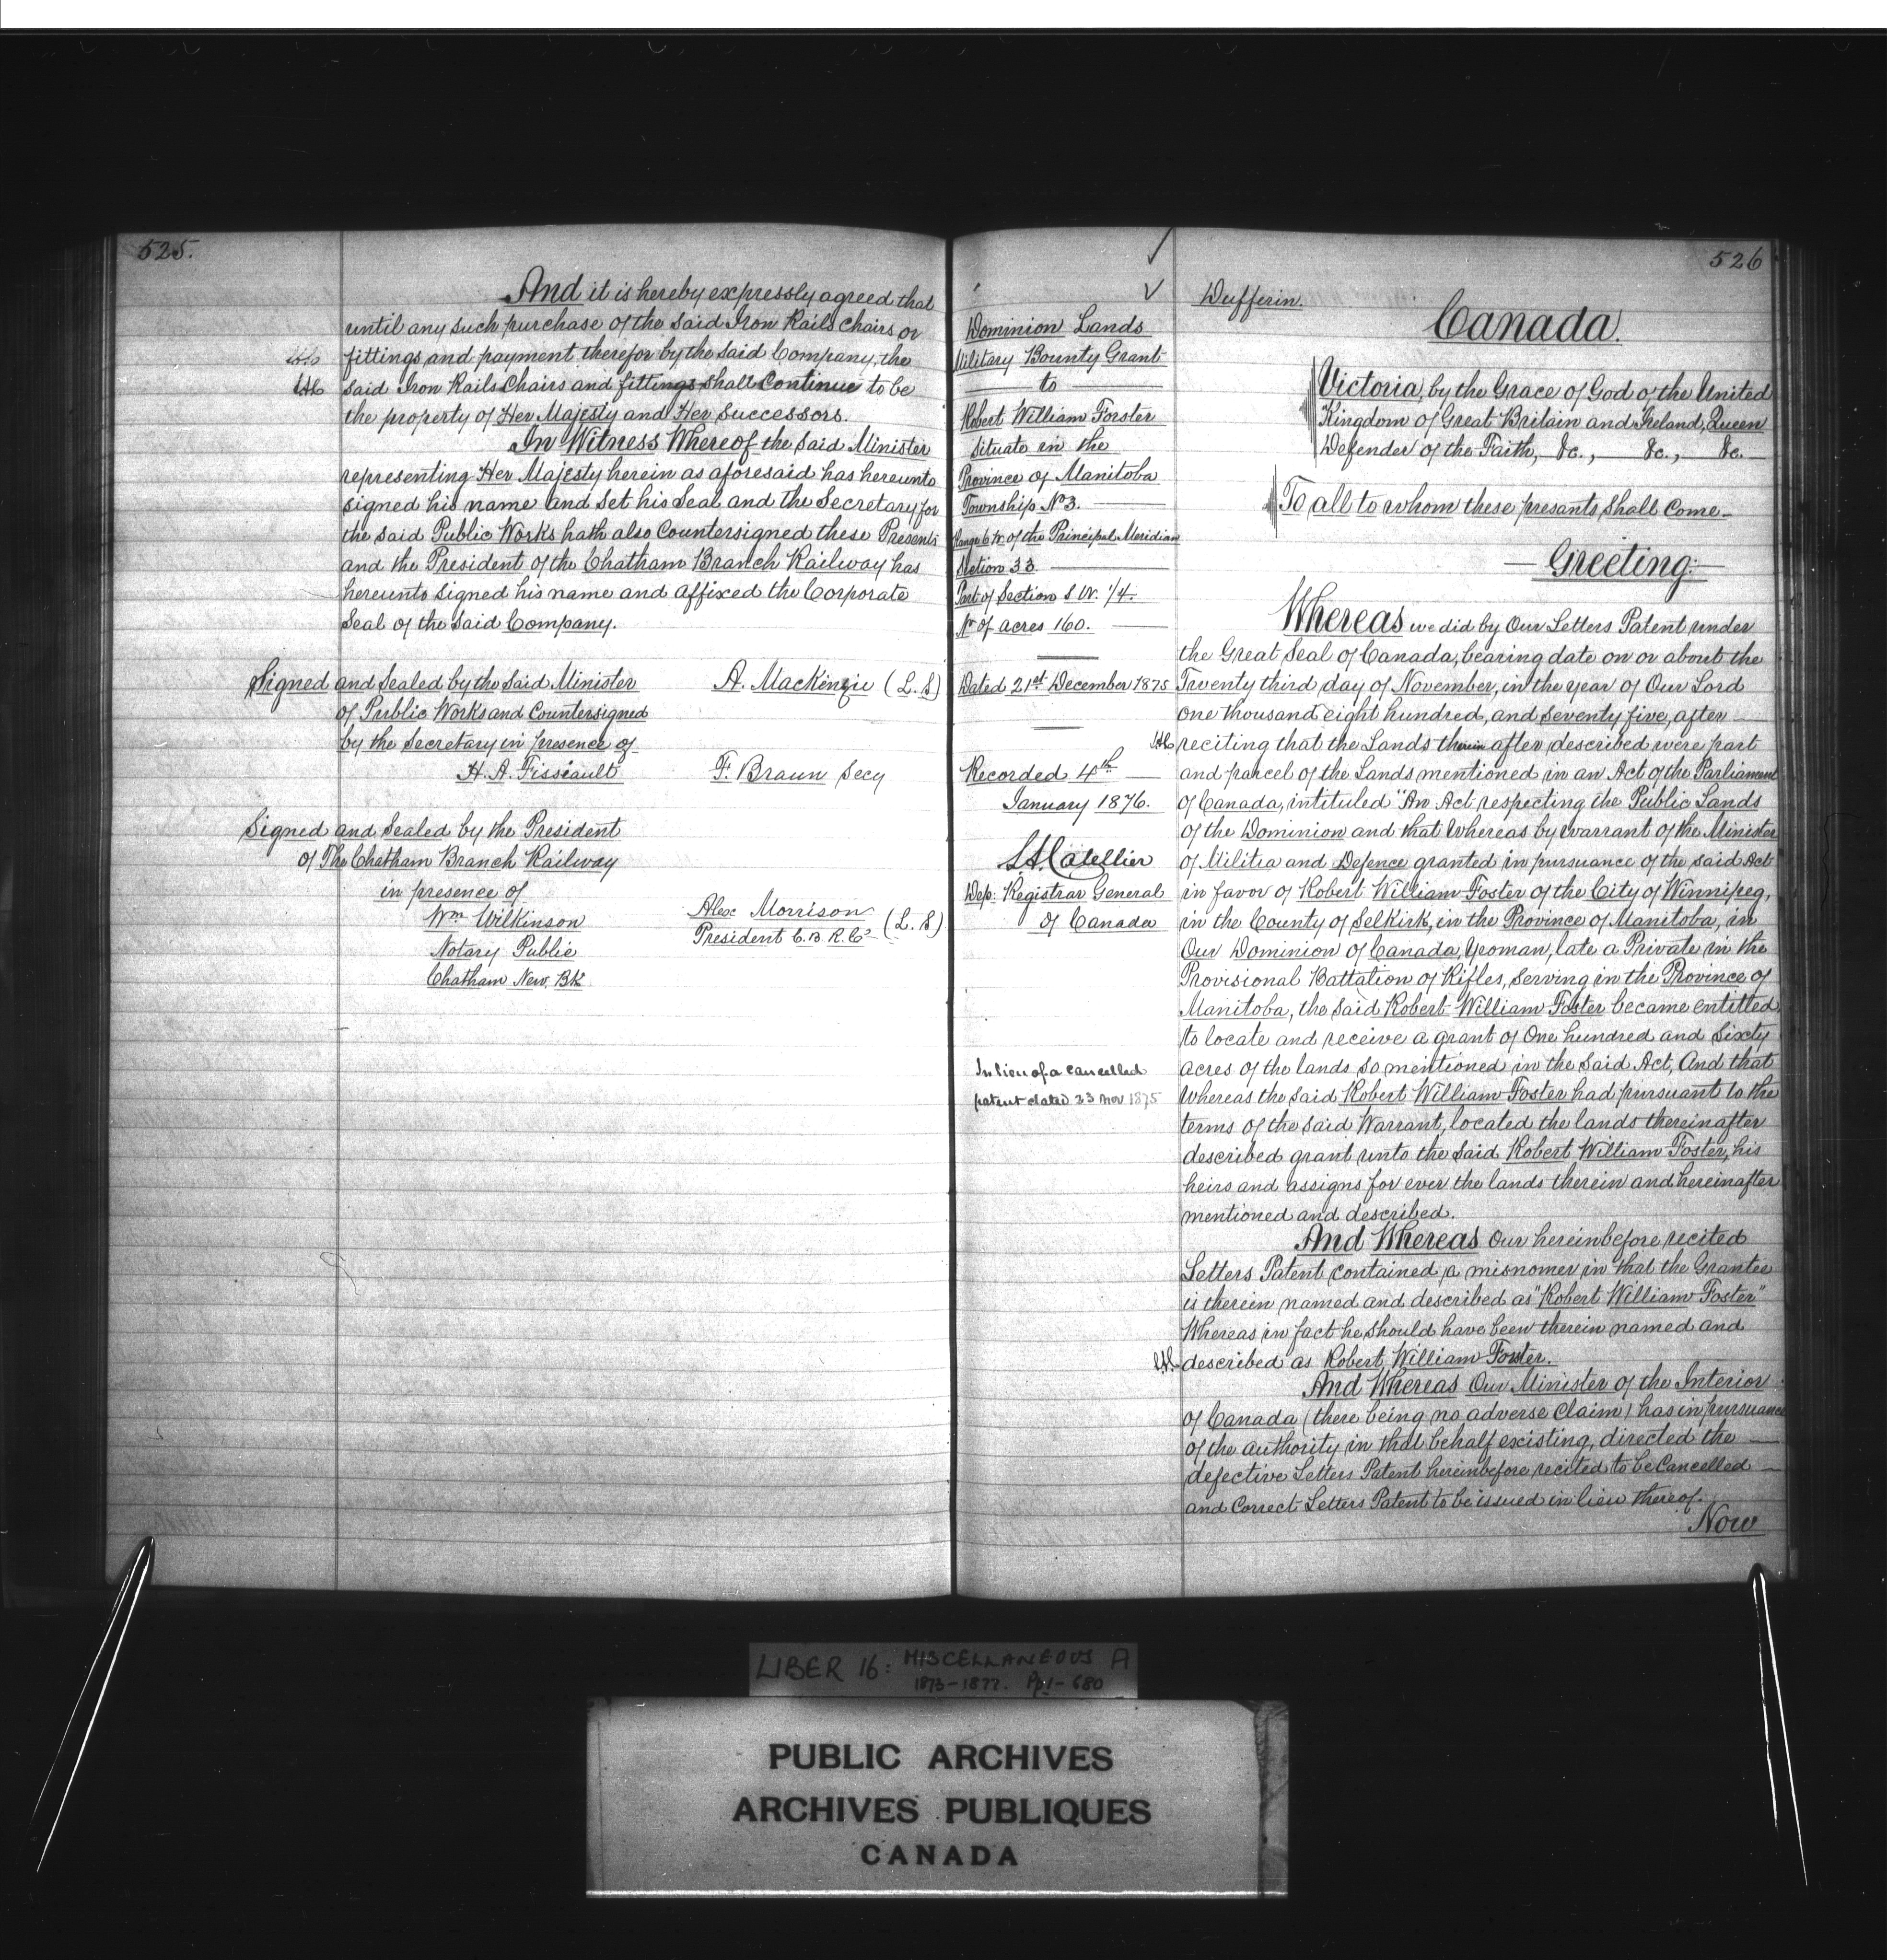 525.
And it is hereby expressly agreed that
until any such purchase of the said Iron Rails Chairs or
fittings and payment therefor by the said Company, the
said Iron Rails Chairs and fittings shall Continue to be
the property of Her Majesty and Her Successors.
In Witness Whereof the said Minister
representing Her Majesty herein as aforesaid has hereunto
signed his name and set his Seal and the Secretary for
the said Public Works hath also Countersigned these Presents
and the President of the Chatham Branch Railway has
hereunto signed his name and affixed the Corporate
Seal of the said Company.
Signed and Sealed by the said Minister
of Public Works and Countersigned
by the Secretary in presence of
H. A. Fissiault
A. Mackenzie (L.S)
F. Braun Secy
Signed and Sealed by the President
of The Chatham Branch Railway
in presence of
Wm Wilkinson
Notary Public
Chatham New Bk
Alex Morrison
President C. B. R. Co (L.S)
526
Dominion Lands
Military Bounty Grant
to
Robert William Forster
Situate in the
Province of Manitoba
Township No 3.
Range 6 W. of the Principal Meridian
Section 33
Part of Section S W. 1/4.
No of acres 160.
Dated 21st December 1875
Recorded 4th
January 1876.
L.A. Catellier
Dep: Registrar General
of Canada
In lieu of a cancelled
patent dated 23 Nov 1875
Dufferin.
Canada.
Victoria, by the Grace of God of the United
Kingdom of Great Britain and Ireland, Queen
Defender of the Faith, &c., &c., &c.
To all to whom these presants shall Come—
— Greeting:—
Whereas we did by Our Letters Patent under
the Great Seal of Canada, bearing date on or about the
Twenty third day of November, in the year of Our Lord
One thousand eight hundred, and seventy five, after
reciting that the Lands therein after described were part
and parcel of the Lands mentioned in an Act of the Parliament
of Canada, intituled "An Act respecting the Public Lands
of the Dominion and that Whereas by Warrant of the Minister
of Militia and Defence granted in pursuance of the said Act
in favor of Robert William Foster of the City of Winnipeg,
in the County of Selkirk, in the Province of Manitoba, in
Our Dominion of Canada, Yeoman, late a Private in the
Provisional Battalion of Rifles, serving in the Province of
Manitoba, the said Robert William Foster became entitled
to locate and receive a grant of One hundred and Sixty
acres of the lands so mentioned in the said Act, And that
Whereas the said Robert William Foster had pursuant to the
terms of the said Warrant, located the lands thereinafter
described grant unto the said Robert William Foster, his
heirs and assigns for ever the lands therein and hereinafter
mentioned and described.
And Whereas Our hereinbefore recited
Letters Patent contained a misnomer in that the Grantee
is therein named and described as "Robert William Foster"
Whereas in fact he should have been therein named and
described as Robert William Forster.
And Whereas Our Minister of the Interior
of Canada (there being no adverse Claim) has in pursuance
of the authority in that behalf existing, directed the
defective Letters Patent hereinbefore recited to be Cancelled
and Correct Letters Patent to be issued in lieu thereof.
Now
LIBER 16: MISCELLANEOUS A
1873-1877. Pp 1-680
PUBLIC ARCHIVES
ARCHIVES PUBLIQUES
CANADA